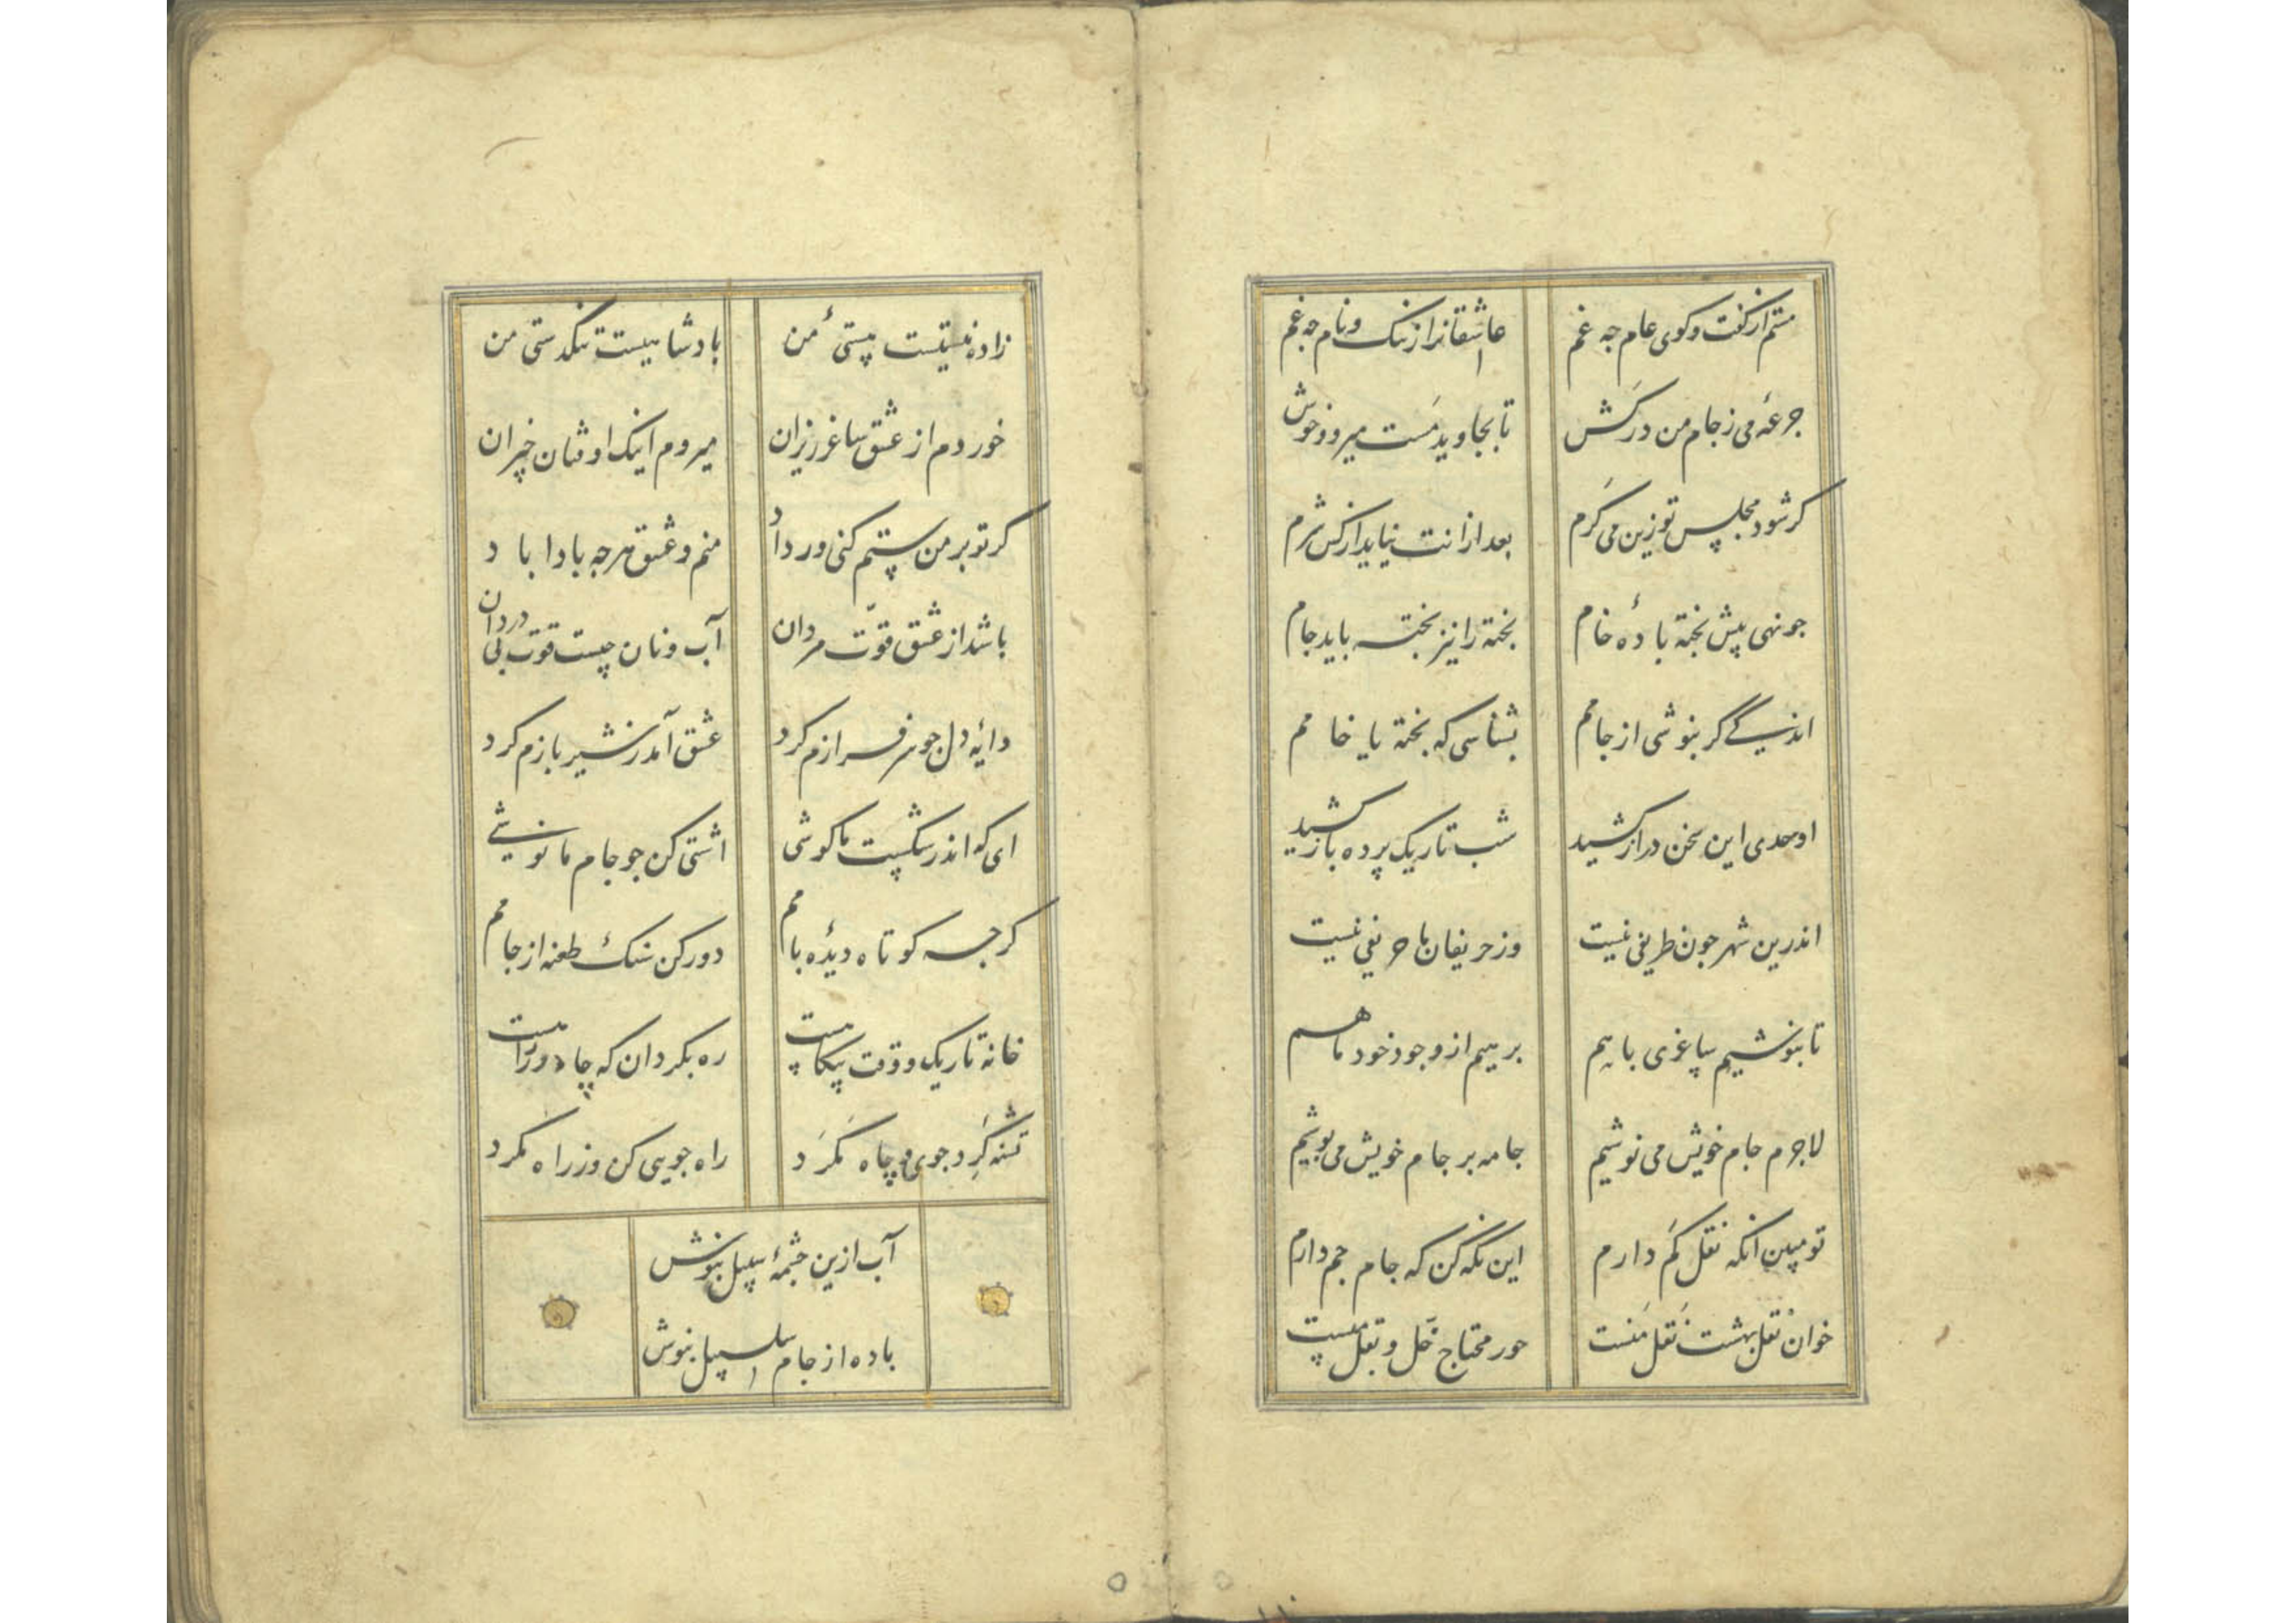 مستم از گفت و کوی عام جه غم
عاشقانرا از ننک و نام جه غم
جرعهٔ می ز جام من درکش
تا بجاوید مست میرو و خوش
کر شود مجلس تو زین می کرم
بعد از انت نیاید از کس شرم
جو نهی پیش پخته بادهٔ خام
پخته را نیز پخته باید جام
اندکے گر بنوشی از جامم
بشناسی که پخته یا خامم
اوحدی این سخن دراز کشید
شب تاریک پرده باز کشید
اندرین شهر جون ظریفی نیست
وز حریفان ما حریفی نیست
تا بنوشیم ساغری با هم
برهیم از وجود خود ما هم
لاجرم جام خویش می نوشیم
جامه بر جام خویش می پوشیم
تو مبین انکه نقل کم دارم
این نکه کن که جام جم دارم
خوان نقل بهشت نقل منست
حور محتاج خل و بقل نیست
زادهٔ نیستیست هستیٔ من
بادشاهیست تنکدستی من
خوردم از عشق ساغر رزان
میروم اینک اوفتان خیزان
کر تو بر من ستم کنی ور داد
منم و عشق هرجه بادا باد
باشد از عشق قوّت مردان
آب و نان چیست قوت بی دردان
دایهٔ دل جو سرفرازم کرد
عشق آمد ز شیر بازم کرد
ای که اندر شکست ما کوشی
اشتی کن جو جام ما نوشے
کرجه کوتاه دیدهٔ بامم
دور کن سنک طعنه از جامم
خانه تاریک و وقت بیکاهست
ره بکردان که چاه در راهست
تشنه کرد جوی و چاه مکرد
راه جویی کن وز راه مکرد
آب ازین چشمهٔ سبیل بنوش
باده از جام سلسبیل بنوش